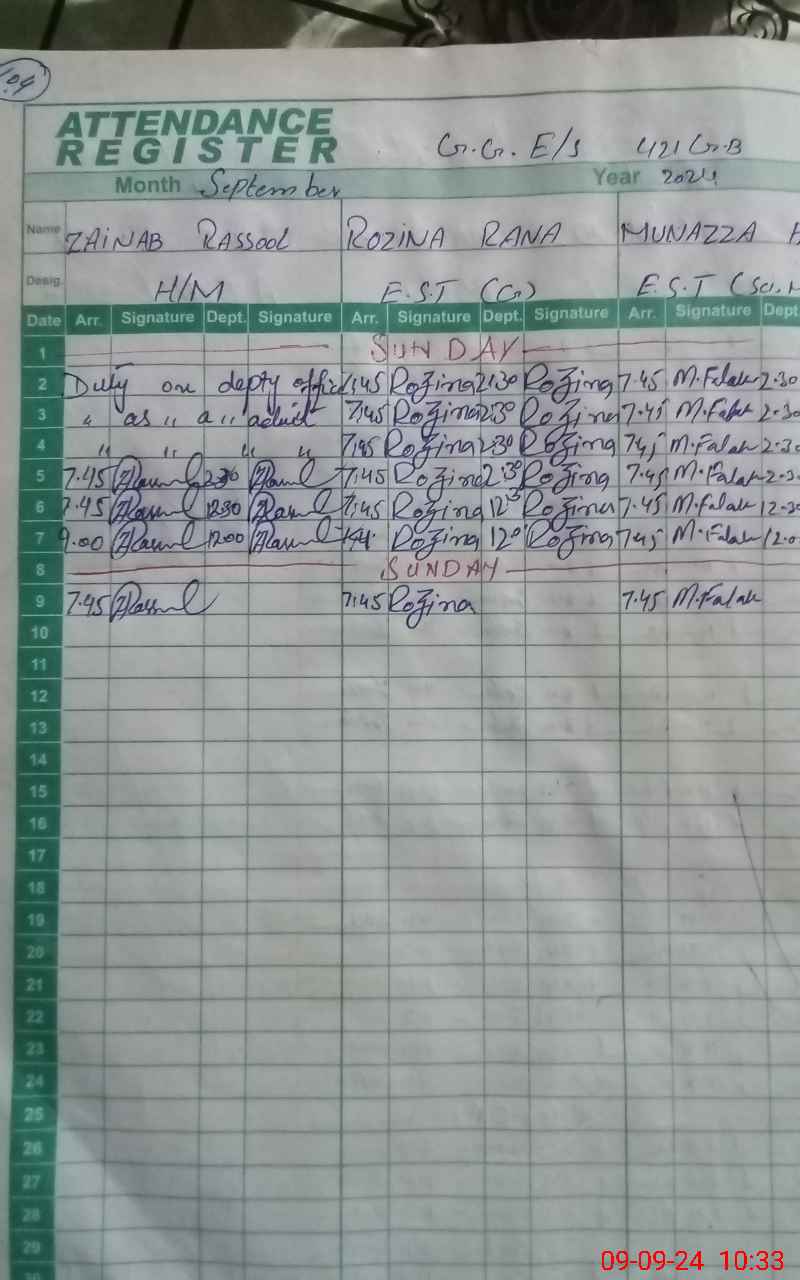 104
ATTENDANCE
REGISTER
G.G. E/S 421 G.B
Month September Year 2024
Name ZAINAB RASSOOL ROZINA RANA MUNAZZA
Desig. H/M E.S.T (G) E.S.T (Sci.M
Date Arr. Signature Dept. Signature Arr. Signature Dept. Signature Arr. Signature Dept
1 SUNDAY
2 Duty on depty 7.45 Rozina 2:30 Rozina 7.45 M.Falak 2.30
3 " as " a " 7.45 Rozina 2.30 Rozina 7.45 M.Falak 2.30
4 " " " " 7.45 Rozina 2.30 Rozina 7.45 M.Falak 2.3
5 7.45 ZRasul 2.30 ZRasul 7.45 Rozina 2.30 Rozina 7.45 M.Falak 2.3
6 7.45 ZRasul 12.30 ZRasul 7.45 Rozina 12.3 Rozina 7.45 M.Falak 12.30
7 9.00 ZRasul 12.00 ZRasul Rozina 12.0 Rozina 7.45 M.Falak 12.0
8 SUNDAY
9 7.45 ZRasul 7.45 Rozina 7.45 M.Falak
10
11
12
13
14
15
16
17
18
19
20
21
22
23
24
25
26
27
28
29
30
09-09-24 10:33